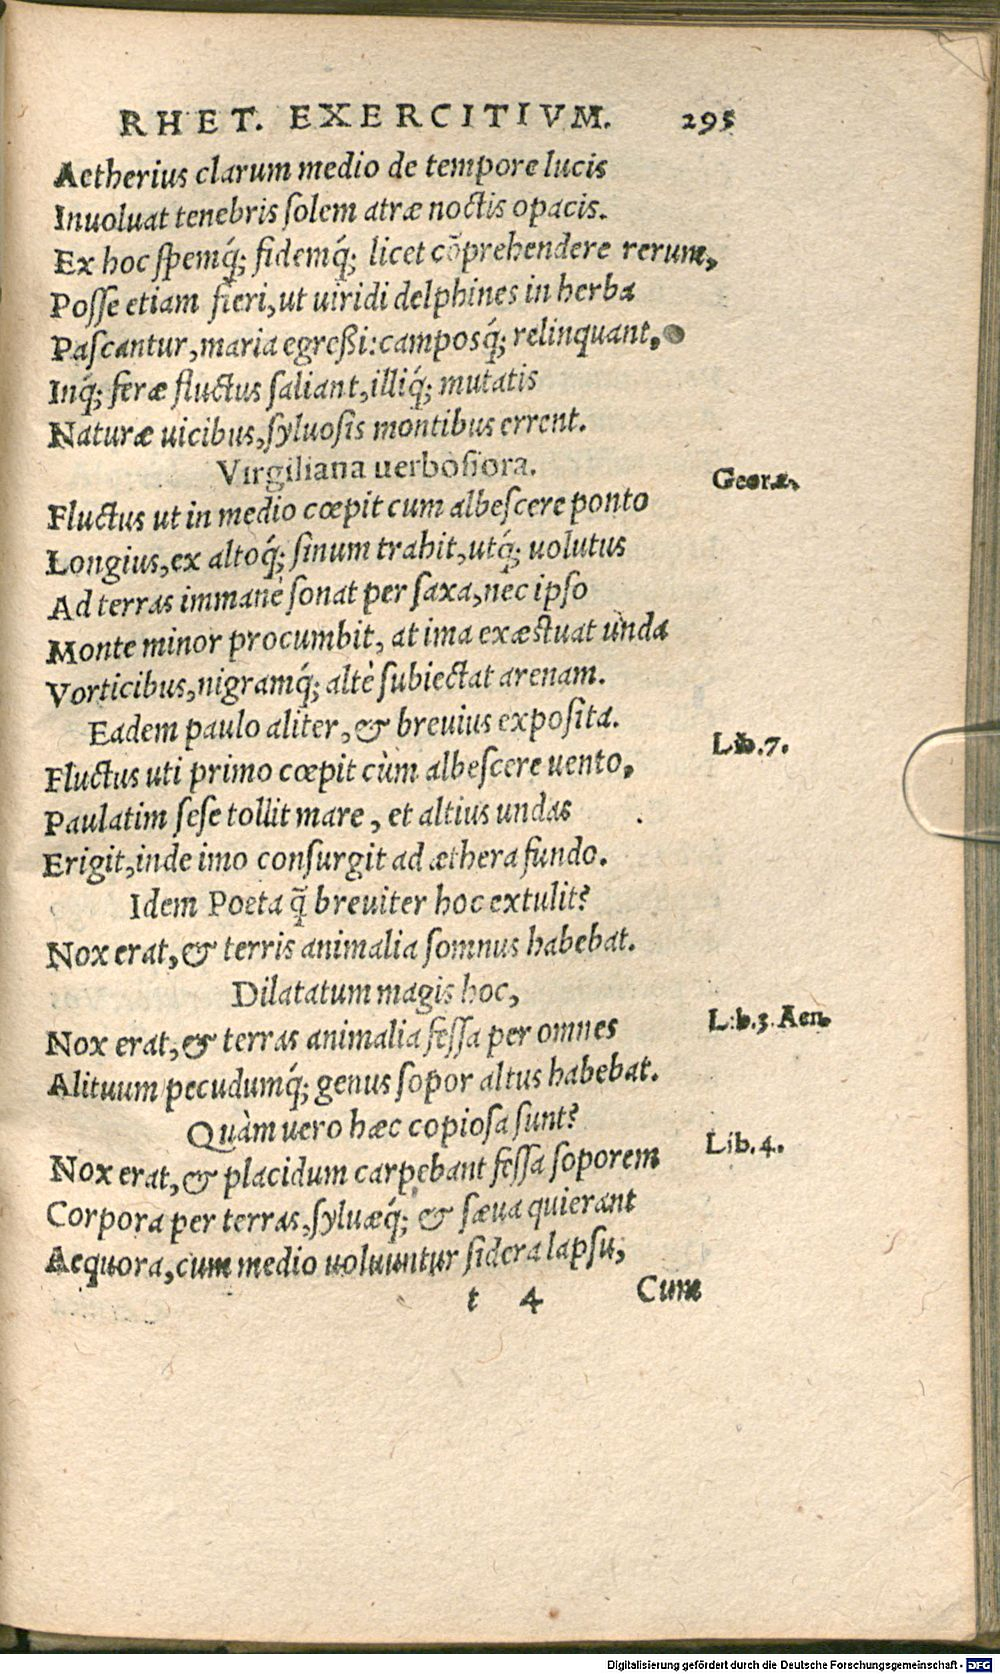 RHET. EXERCITIVM. 295
Aetherius clarum medio de tempore lucis
Inuoluat tenebris ſolem atræ noctis opacis.
Ex hoc ſpemq́; fidemq́; licet cõprehendere rerum,
Poſſe etiam fieri, ut uiridi delphines in herba
Paſcantur, maria egreßi: camposq́; relinquant,
Inq́; feræ fluctus ſaliant, illiq́; mutatis
Naturæ uicibus, ſyluoſis montibus errent.
Virgiliana uerboſiora. Geor.
Fluctus ut in medio cœpit cum albeſcere ponto
Longius, ex altoq́; ſinum trahit, utq́; uolutus
Ad terras immane ſonat per ſaxa, nec ipſo
Monte minor procumbit, at ima exæſtuat unda
Vorticibus, nigramq́; altè ſubiectat arenam.
Eadem paulo aliter, & breuius expoſita.
Lib. 7.
Fluctus uti primo cœpit cùm albeſcere uento,
Paulatim ſeſe tollit mare, et altius undas
Erigit, inde imo conſurgit ad æthera fundo.
Idem Poeta q̃ breuiter hoc extulit?
Nox erat, & terris animalia ſomnus habebat.
Dilatatum magis hoc,
Lib. 3. Aen.
Nox erat, & terras animalia feſſa per omnes
Alituum pecudumq́; genus ſopor altus habebat.
Quàm uero hæc copioſa ſunt?
Lib. 4.
Nox erat, & placidum carpebant feſſa ſoporem
Corpora per terras, ſyluæq́; & ſæua quierant
Aequora, cum medio uoluuntur ſidera lapſu,
t 4 Cum
Digitalisierung gefördert durch die Deutsche Forschungsgemeinschaft - DFG